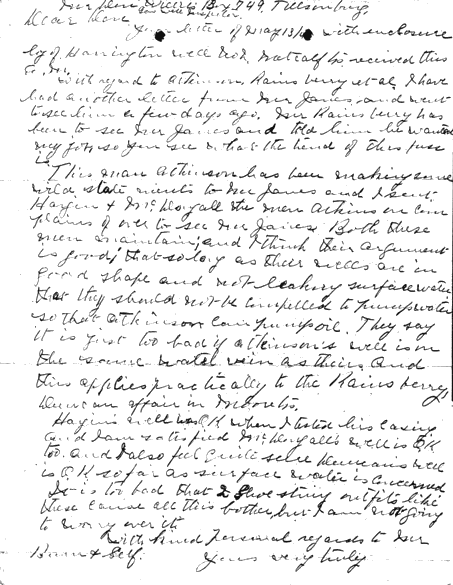 Dear Don
Your letter of May 13/10 with enclosure
log of Harrington well No1, Metcalf No1, received this
With regard to Atkinson, Rainsberry et al, I have
had another letter from Mr Janes and went
to see him a few days ago. Mr Rainsberry has
been to see Mr Janes and told him he wanted
my job so you see what the trend of this fuss
is.
This man Atkinson has been making some
wild statements to Mr Janes and I sent
Hagin & McDougall the men Atkinson com
plains of over to see Mr Janes. Both these
men maintain, and I think their argument
is good, that so long as their wells are in
good shape and not leaking surface water
that they should not be compelled to pump water
so that Atkinson can pump oil. They say
it is just too bad if Atkinson's well is on
the same water vein as theirs, and
this applies practically to the Rainsberry,
Duncan affair in
Hagin's well was OK when I tested his casing
and I am satisfied McDougall's well is OK
too. and I also feel quite sure Duncans well
is OK so far as surface water is concerned
It is too bad that 2 shoe string outfits like
these cause all this bother, but I am not going
to worry over it
With kind personal regards to Mr
& Self. Yours very truly